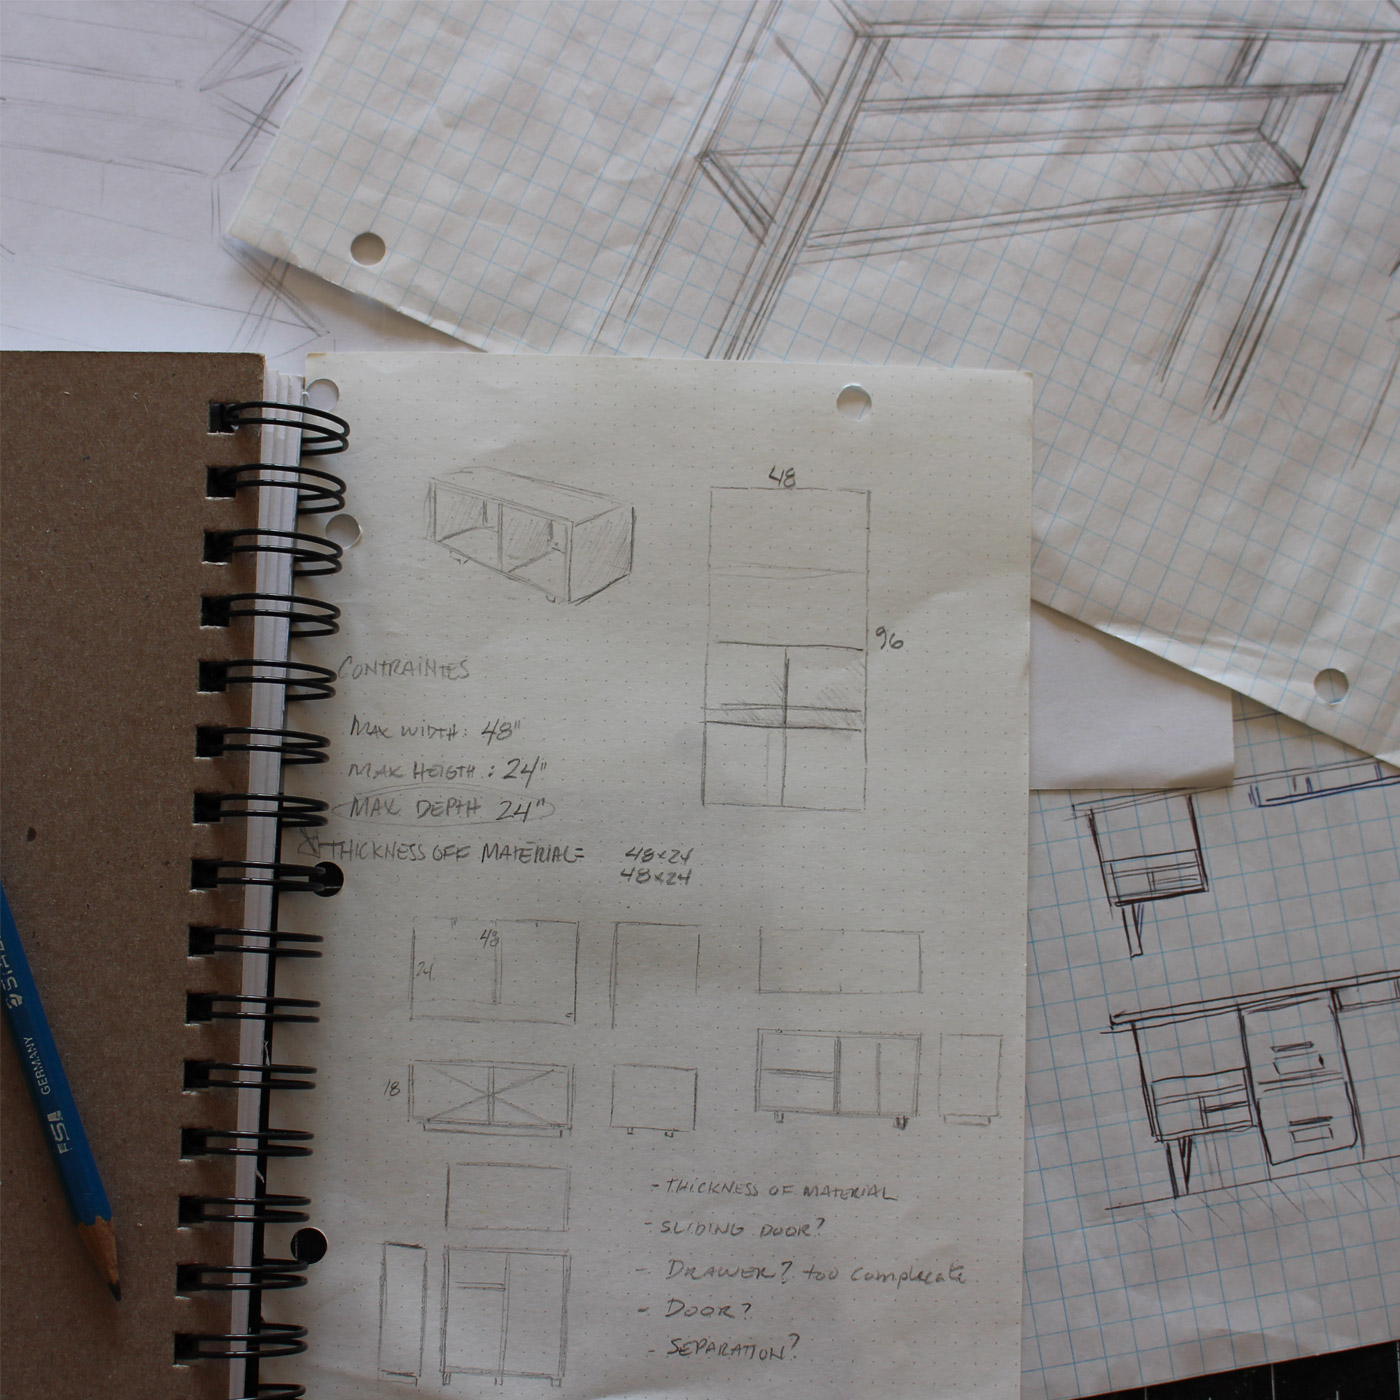 48
96
CONTRAINTES
MAX WIDTH: 48"
MAX HEIGTH: 24"
MAX DEPTH 24"
THICKNESS OFF MATERIAL=
48x24
48x24
48
24
18
- THICKNESS OF MATERIAL
- SLIDING DOOR?
- DRAWER? too complicate
- DOOR?
- SEPARATION?
GERMANY